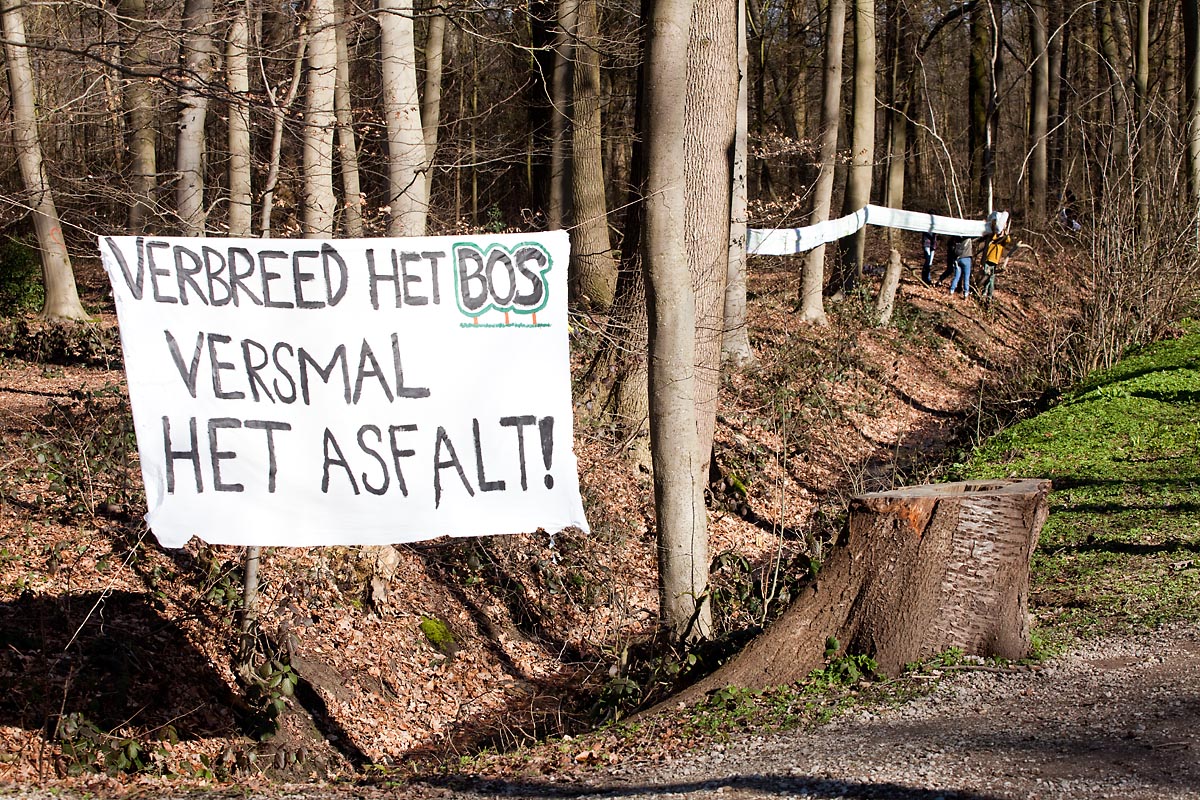 VERBREED HET BOS
VERSMAL
HET ASFALT!